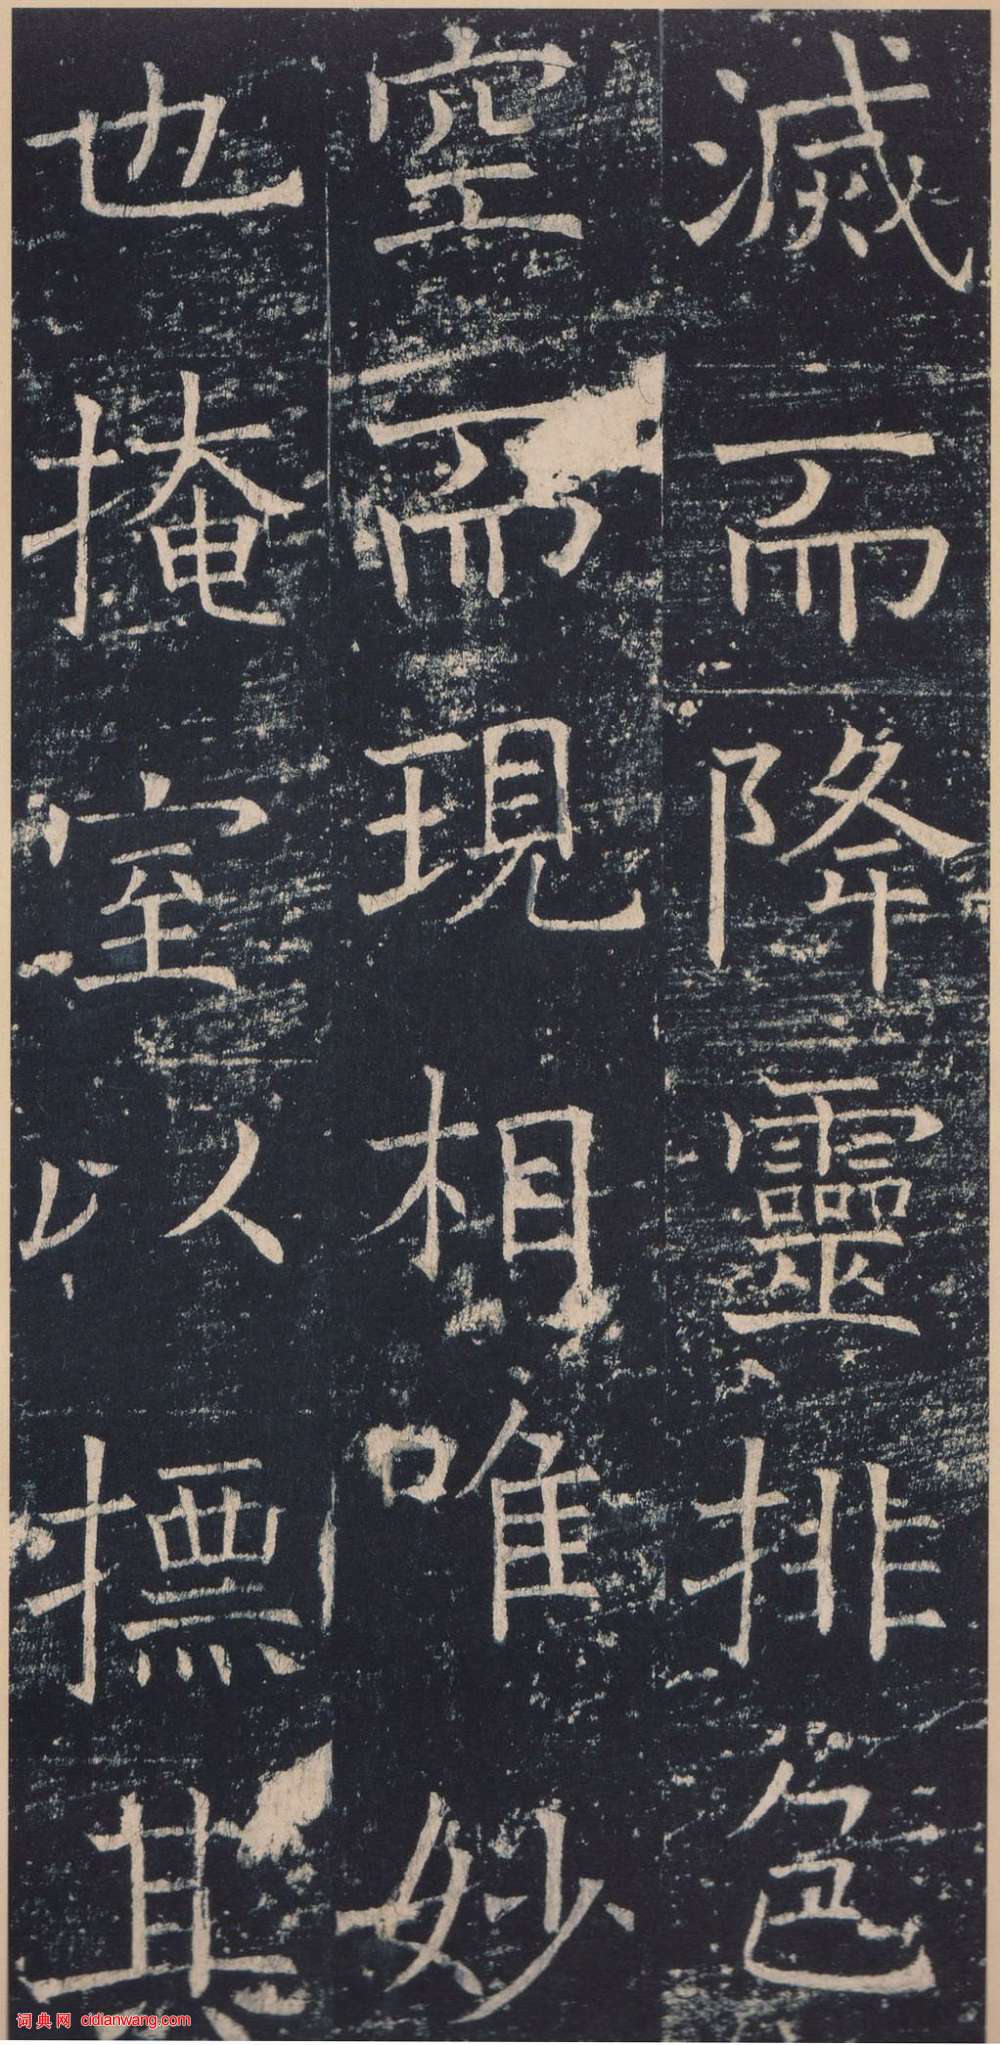 滅而降靈排色
空而現相唯妙
也掩室以摽其
词典网 cidianwang.com